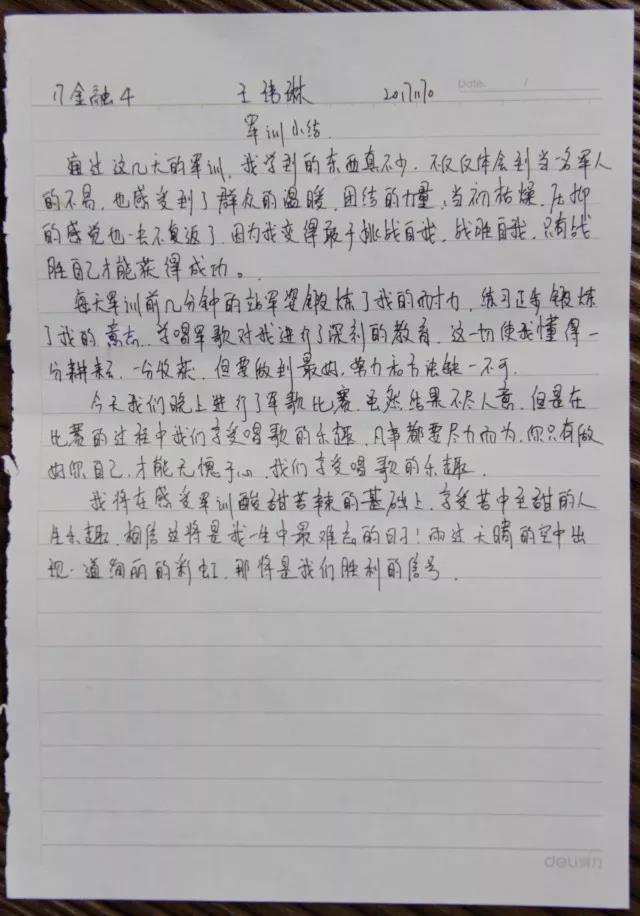 17金融4 王 琳 20171110
Date: /
军训小结
通过这几天的军训,我学到的东西真不少.不仅仅体会到当一名军人
的不易,也感受到了群众的温暖,团结的力量,当初枯燥,压抑
的感觉也一去不复返了,因为我变得敢于挑战自我,战胜自我,只有战
胜自己才能获得成功。
每天军训前几分钟的站军姿锻炼了我的耐力,练习正步锻炼
了我的意志,学唱军歌对我进行了深刻的教育,这一切使我懂得一
分耕耘,一分收获,但要做到最好,努力和方法缺一不可.
今天我们晚上进行了军歌比赛,虽然结果不尽人意,但是在
比赛的过程中我们享受唱歌的乐趣,凡事都要尽力而为,你只有做
好你自己,才能无愧于心,我们享受唱歌的乐趣.
我将在感受军训酸甜苦辣的基础上,享受苦中至甜的人
生乐趣,相信这将是我一生中最难忘的日子!雨过天晴的空中出
现一道绚丽的彩虹,那将是我们胜利的信号.
deli得力